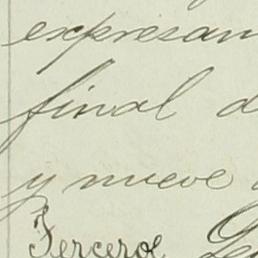 expresan
final d
y nueve
Tercero